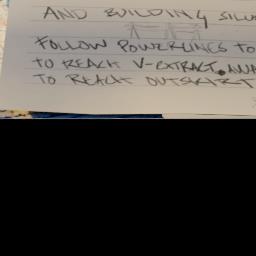 AND BUILDING SILU
FOLLOW POWERLINES TO
TO REACH V-EXTRACT. AWA
TO REACH OUTSKIRT